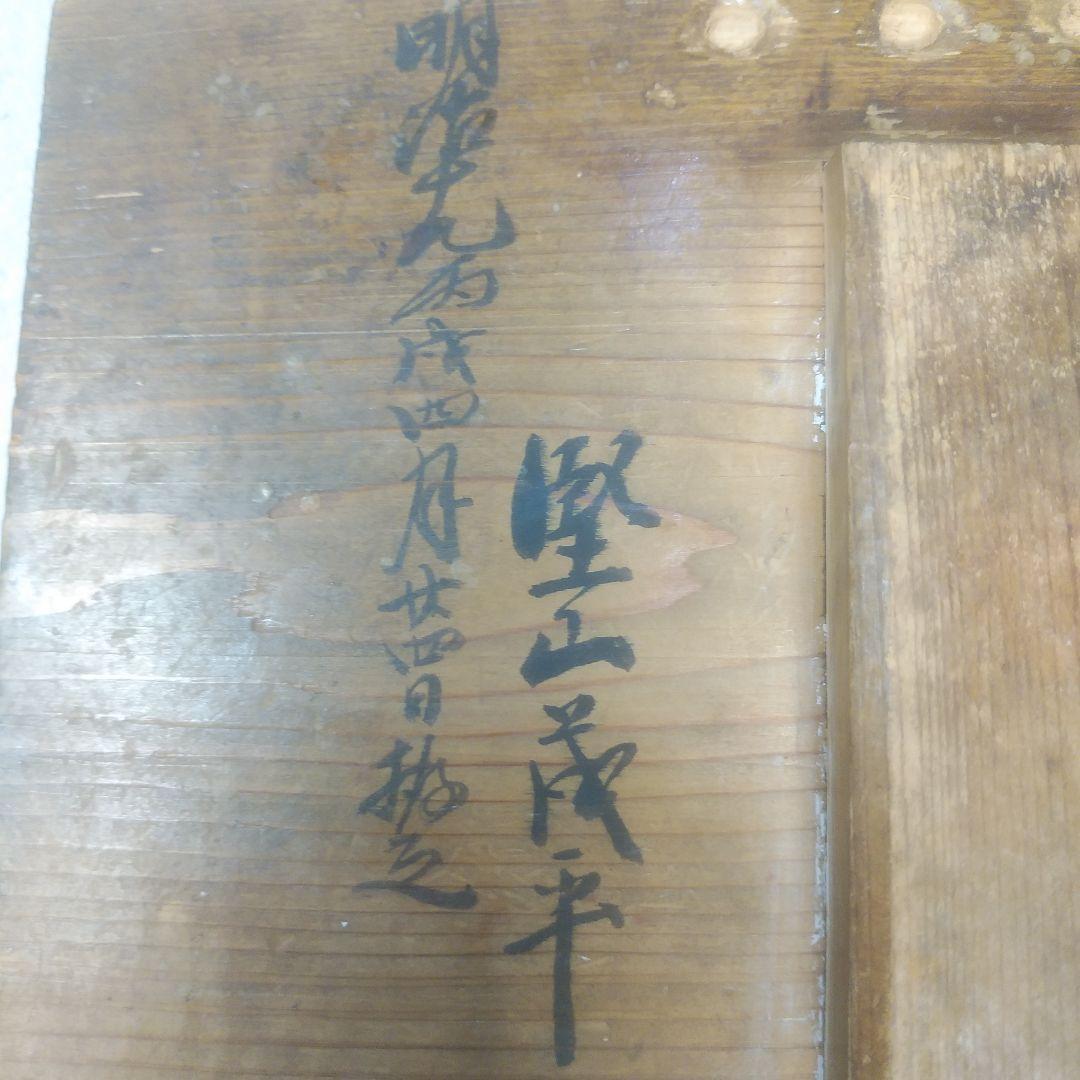 堅山茂平
明治十九丙戌四月廿四日拵之